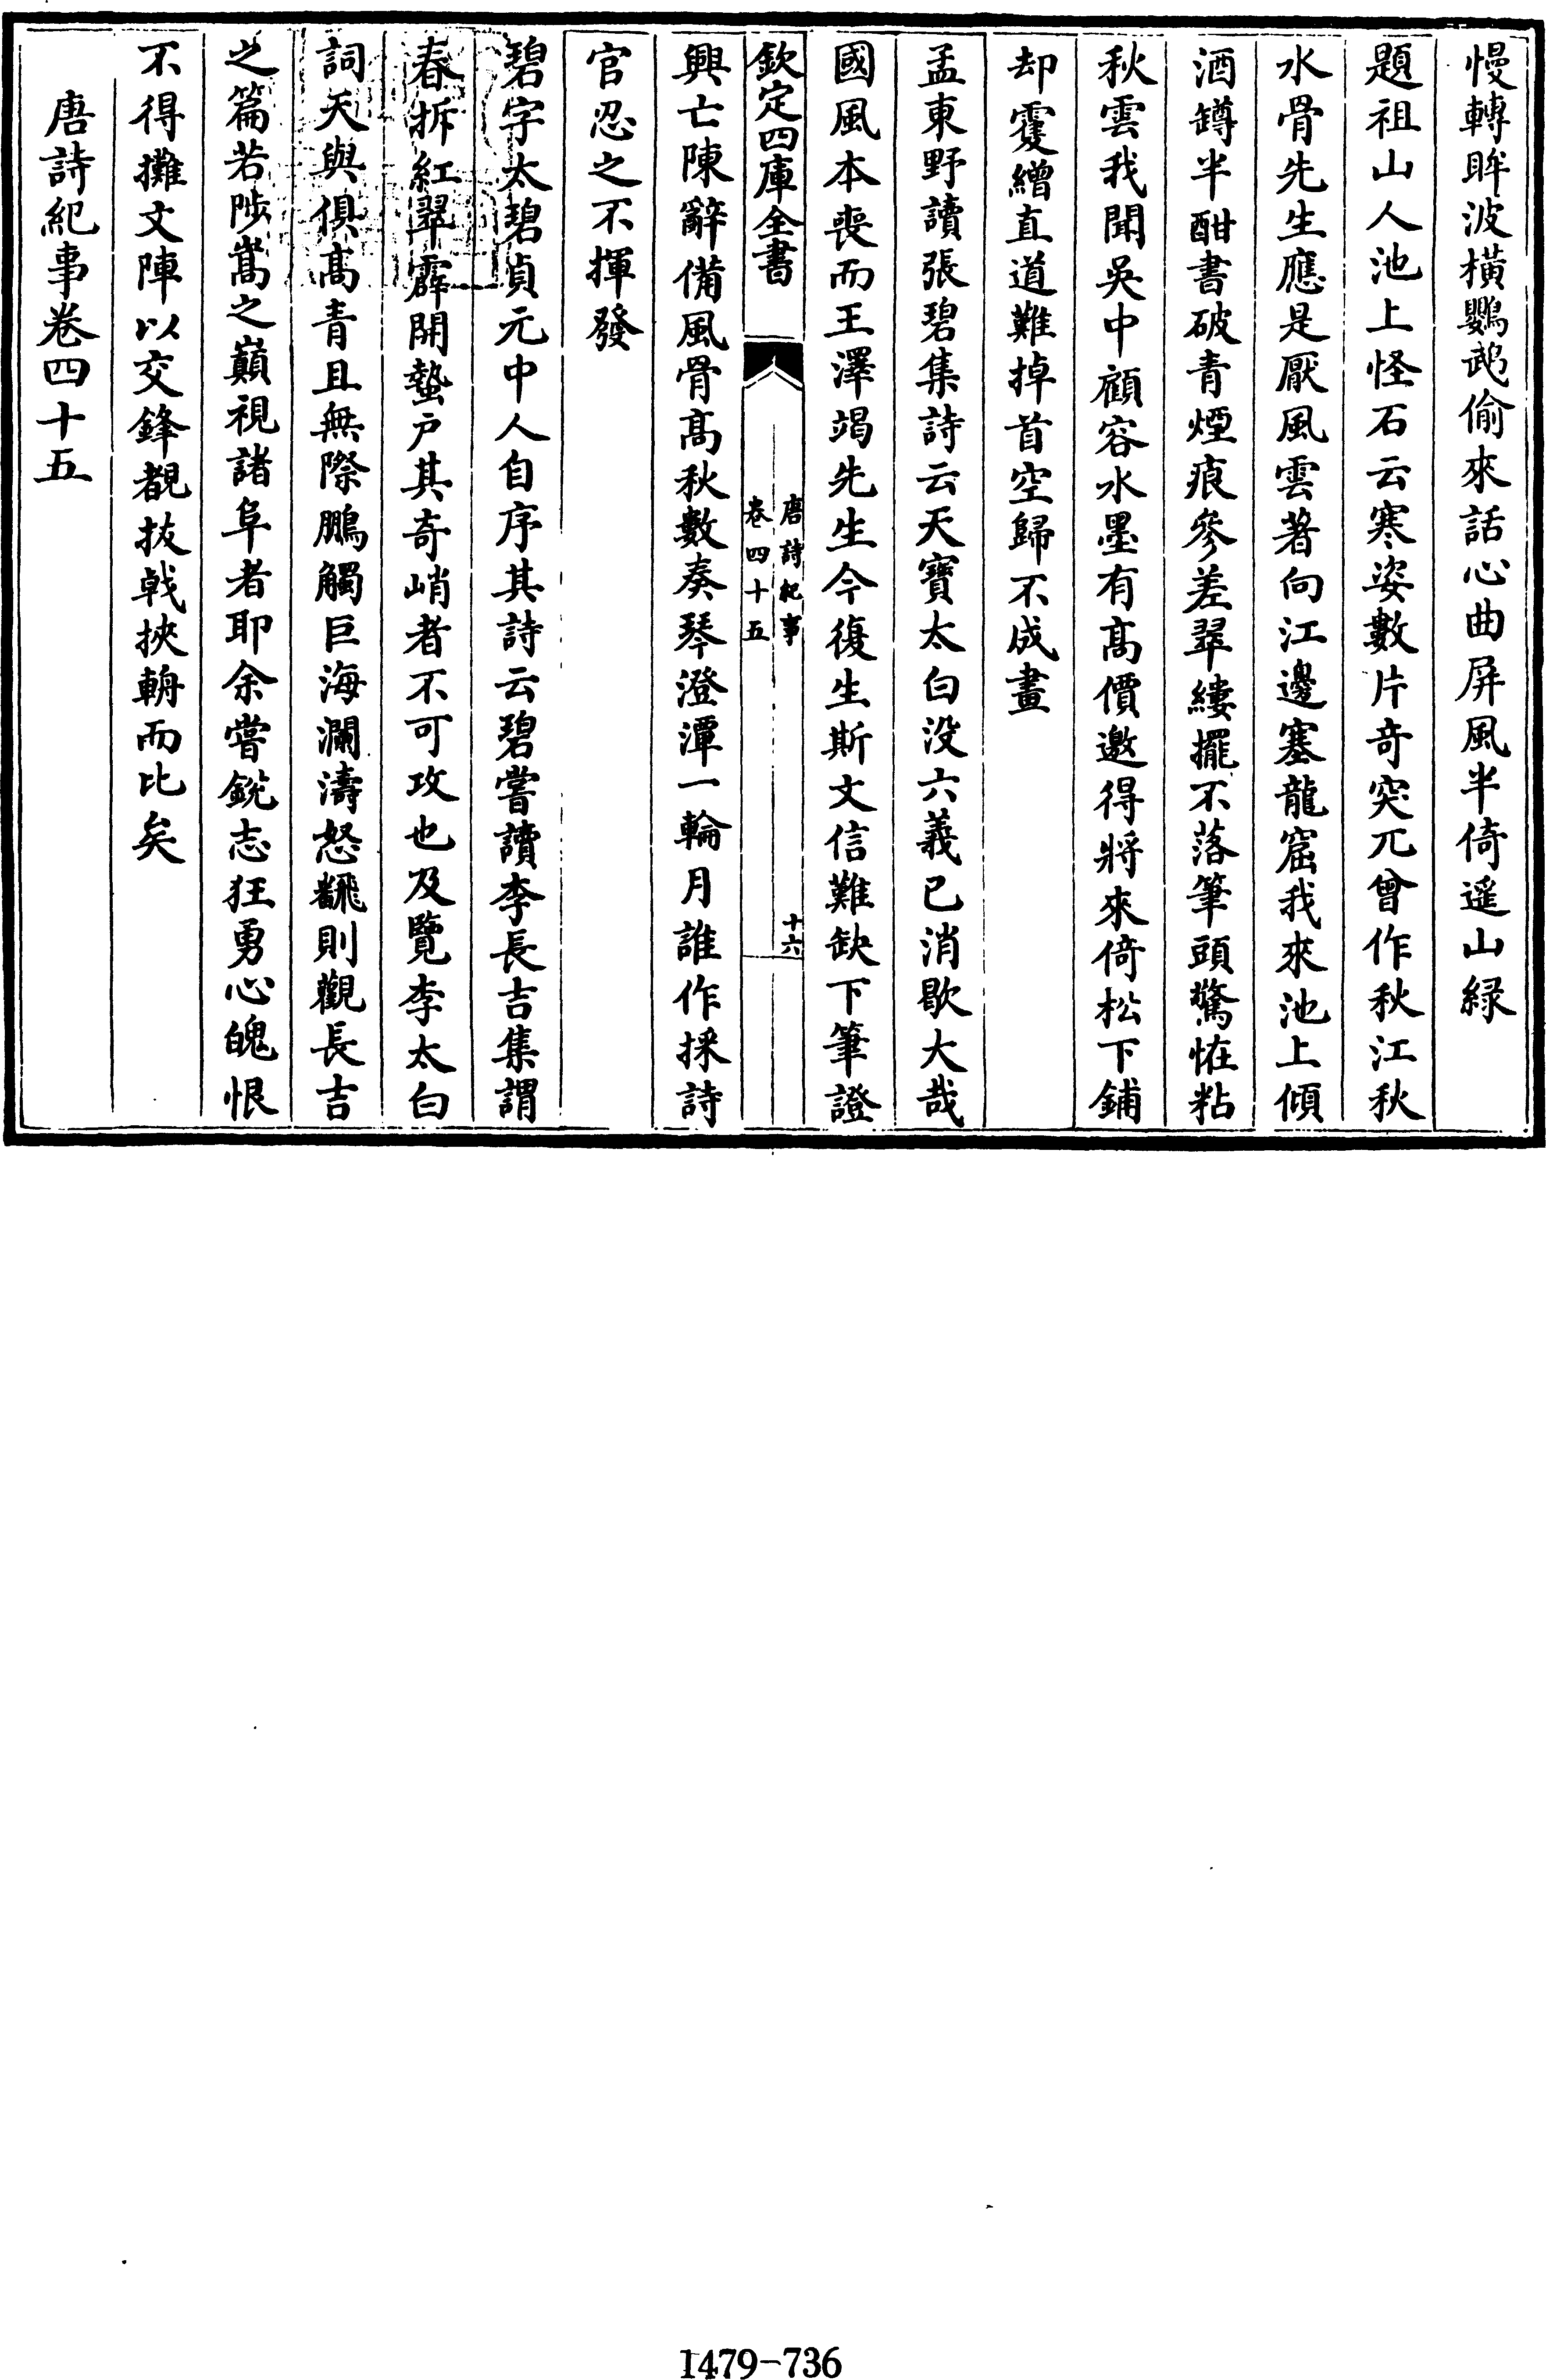 慢轉眸波橫鸚鵡偷來話心曲屏風半倚遥山緑
題祖山人池上怪石云寒姿數片竒突兀曾作秋江秋
水骨先生應是厭風雲著向江邊塞龍窟我來池上傾
酒罇半酣書破青煙痕參差翠縷擺不落筆頭驚恠粘
秋雲我聞吳中顧容水墨有髙價邀得將來倚松下鋪
却䨥繒直道難掉首空歸不成畫
孟東野讀張碧集詩云天寶太白没六義已消歇大哉
國風本喪而王澤竭先生今復生斯文信難缺下筆證
欽定四庫全書
唐詩紀事
卷四十五
十六
興亡陳辭備風骨髙秋數奏琴澄潭一輪月誰作採詩
官忍之不揮發
碧字太碧貞元中人自序其詩云碧嘗讀李長吉集謂
春拆紅翠霹開蟄户其奇峭者不可攻也及覽李太白
詞天與俱髙青且無際鵬觸巨海瀾濤怒飜則觀長吉
之篇若陟嵩之巔視諸阜者耶余嘗銳志狂勇心魄恨
不得攤文陣以交鋒覩拔戟挾輈而比矣
唐詩紀事卷四十五
1479-736